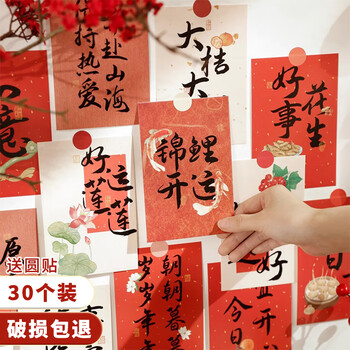 赴山海
持热爱
大桔
大
好事
花生
意
好运
莲莲
锦鲤
开运
朝朝暮暮
岁岁年年
好
宜开
今日
送圆贴
30个装
破损包退